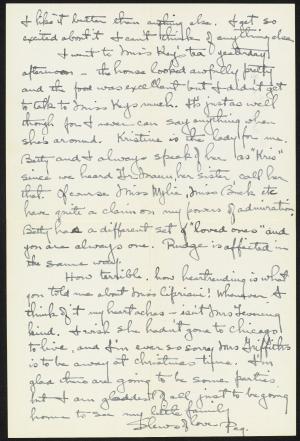 I like it better than anything else. I get so
excited about it I can't think of anything else.
I went to Miss Key's tea yesterday
afternoon – the house looked awfully pretty
and the food was excellent but I didn't get
to talk to Miss Keys much. It's just as well
though for I never can say anything when
she's around. Kristine is the lady for me.
Betty and I always speak of her as "Kris"
since we heard her sister call her
that. Of course Miss Wylie, Miss Beck etc
have quite a claim on my powers of admiration.
Betty has a different set of "loved ones" and
you are always one. Pudge is affected in
the same way.
How terrible, how heartrending is what
you told me about Miss Cipriani! Whenever I
think of it my heart aches – isn't Mrs
kind. I wish she hadn't gone to Chicago
to live, and I'm ever so sorry Mrs Griffiths
is to be away at Christmas time. I'm
glad there are going to be some parties
but I am gladdest of all just to be going
home to see my little family
Slews of love – Peg.